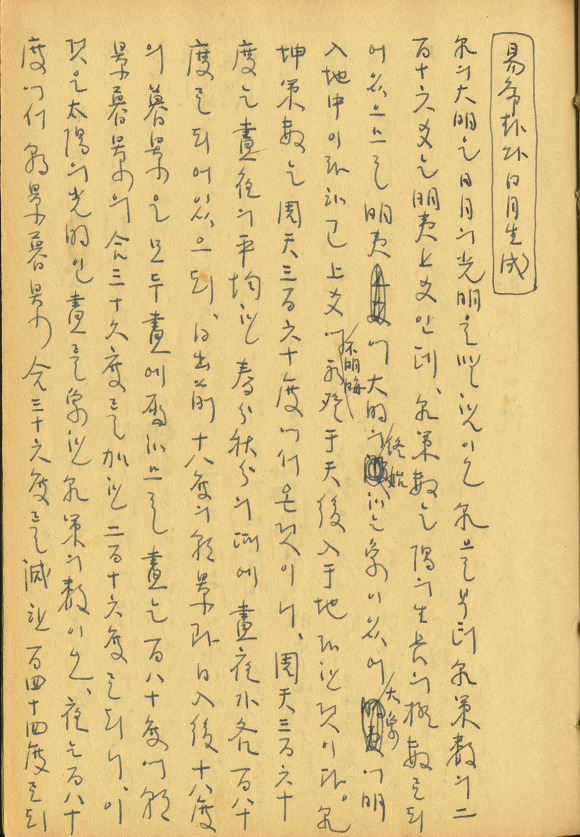 易學上과 日月生成
乾의 大明은 日月의 光明을 말한 것이오 乾으로부터 乾策數의 二
百十六爻는 明夷上爻인데, 乾策數는 陽의 生長의 極數로 되
어 있으므로 明夷에 大明의 終始하는 象이 있어 大象에 明
入地中이라 하고 上爻에 不明晦 初登于天 後入于地라 한 것이다. 乾
坤策數는 周天三百六十度에서 온 것이니, 周天三百六十
度는 晝夜의 平均한 春分秋分의 때에 晝夜가 各百八十
度로 되어 있으되, 日出前 十八度의 朝景과 日入後 十八度
의 暮景은 모두 晝에 屬하므로 晝는 百八十度에 朝
景暮景의 合三十六度를 加한 二百十六度로 되니, 이
것은 太陽의 光明인 晝를 象한 乾策의 數이오, 夜는 百八十
度에서 朝景暮景의 合三十六度를 減한 百四十四度로 되